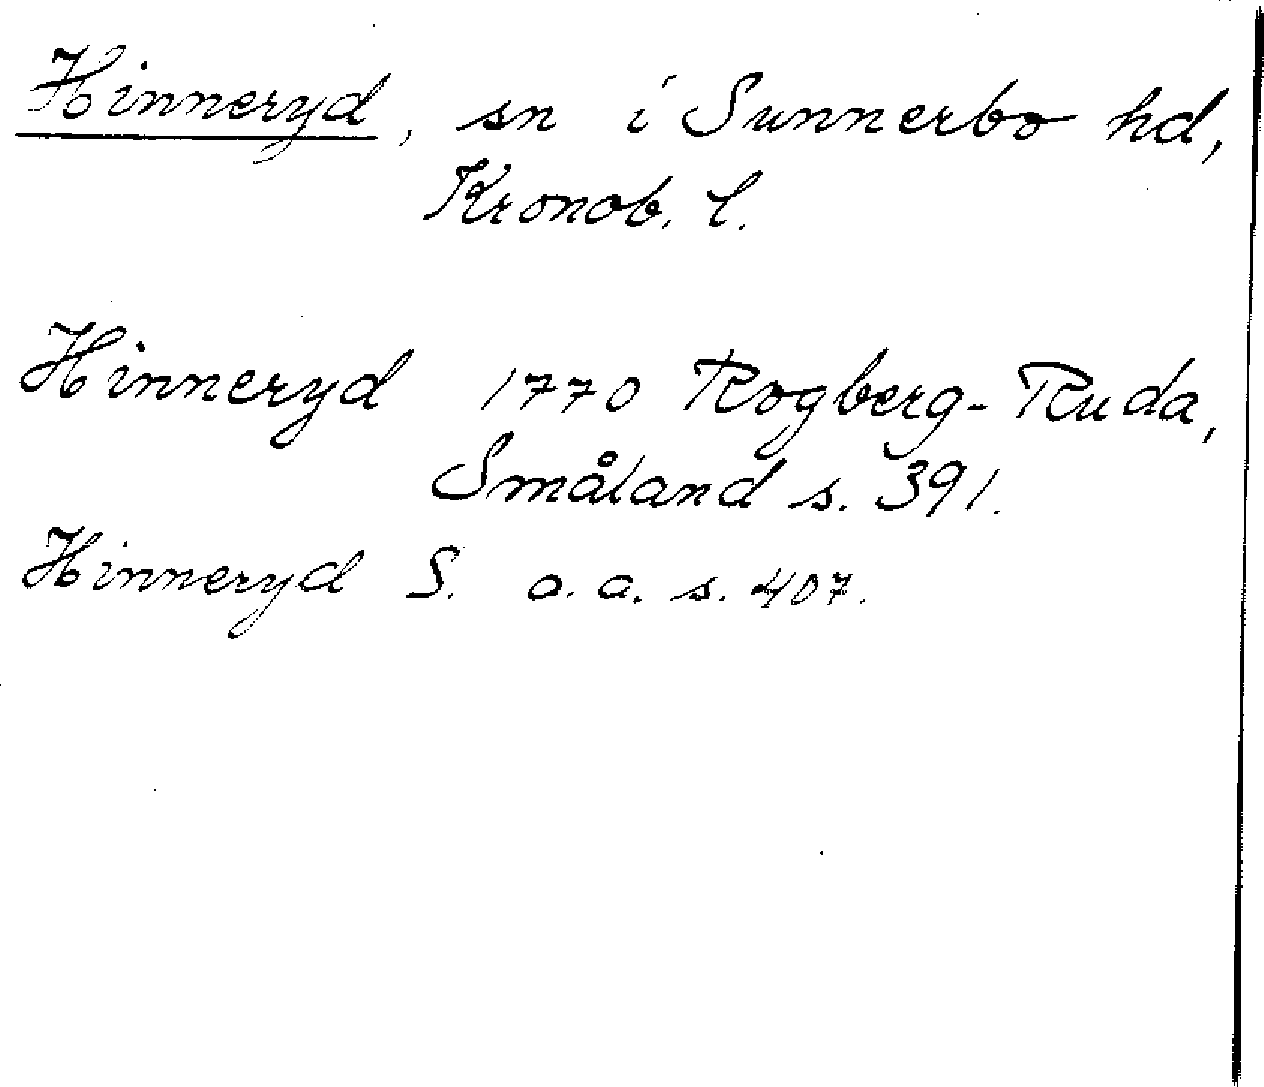 Hinneryd, sn i Sunnerbo hd,
Kronob. l.
Hinneryd 1770 Rogberg-Ruda,
Småland s. 391.
Hinneryd S. a. a. s. 407.